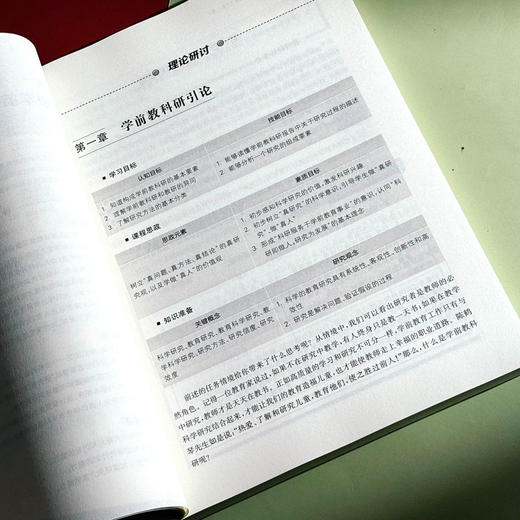 理论研讨
第一章 学前教科研引论
■ 学习目标
认知目标
技能目标
1 知道构成学前教科研的基本要素
2 理解学前教科研和教研的异同
3 了解研究方法的基本分类
1. 能够读懂学前教科研报告中关于研究过程的描述
2 能够分析一个研究的组成要素
■ 课程思政
思政元素
素质目标
树立“真问题、真方法、真结论”的真研
究观,以及学做“真人”的价值观
1 初步感知科学研究的价值,激发科研兴趣
2 初步树立“真研究”的科学意识,引导学生做“真研
究”、做“真人”
3 形成“科研服务于学前教育事业”的意识,认同“科
研即做人,研究为发展”的基本理念
■ 知识准备
关键概念
研究观念
科学研究、教育研究、教育科学研究、教
学科学研究、研究方法、研究信度、研究
效度
1. 科学的教育研究具有系统性、客观性、创新性和高
效性
2. 研究是解决问题、验证假设的过程
前述的任务情境给你带来了什么思考呢?从情境中,我们可以看出研究者是教师的必
然角色。记得一位教育家说过,如果不在研究中教学,有人终身只是教一天书,如果在教学
中研究,教师才是天天在教书。正如高质量的学习和研究不可分一样,学前教育工作只有与
科学研究结合起来,才能让我们的教育造福儿童,也才能使教师走上幸福的职业道路。陈鹤
琴先生如是说:“热爱、了解和研究儿童,教育他们,使之胜过前人!”那么,什么是学前教科
研呢?